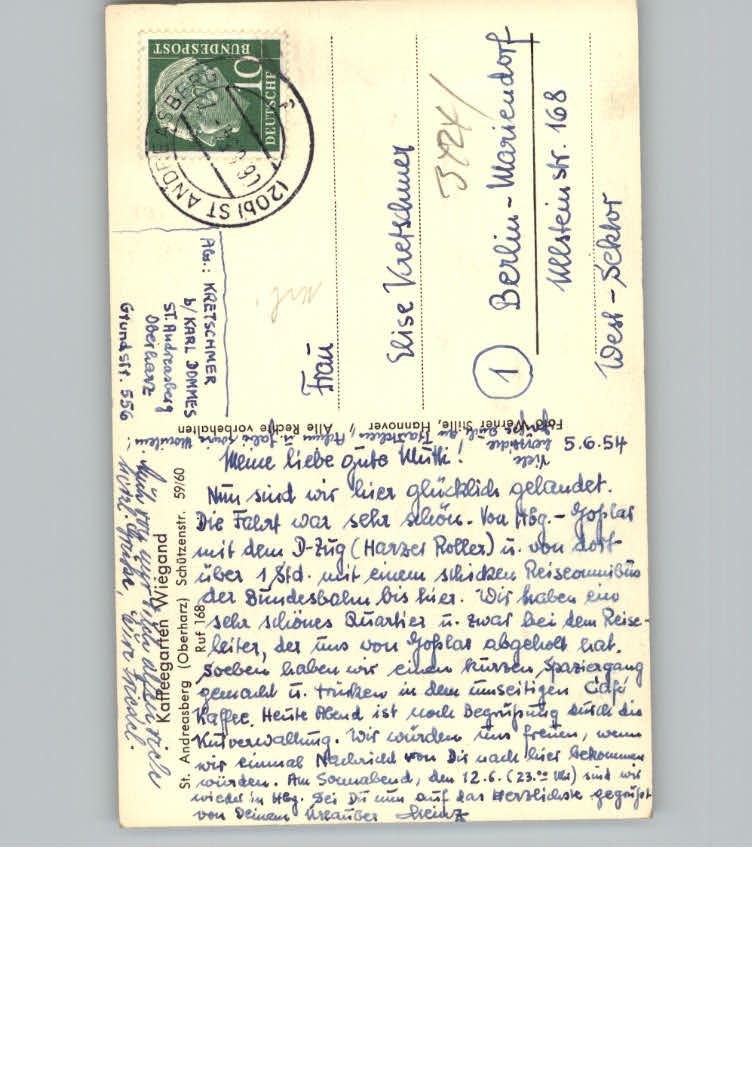 5.6.54
Meine liebe gute Mutti!
Nun sind wir hier glücklich gelandet.
Die Fahrt war sehr schön. Von Hbg. - Goßlar
mit dem D-Zug (Harzer Roller) u. von dort
über 1 Std. mit einem schicken Reiseomnibus
der Bundesbahn bis hier. Wir haben ein
sehr schönes Quartier u. zwar bei dem Reise-
leiter, der uns von Goßlar abgeholt hat.
Soeben haben wir einen kurzen Spaziergang
gemacht u. trinken in dem umseitigen Café
Kaffee. Heute Abend ist noch Begrüßung durch die
Kurverwaltung. Wir würden uns freuen, wenn
wir einmal Nachricht von Dir nach hier bekommen
würden. Am Sonnabend, den 12.6. (23.00 Uhr) sind wir
wieder in Hbg. Sei Du nun auf das Herzlichste gegrüßt
von Deinem Urlauber Heinz
Viele
Auch von mir
Grüße,
Kaffeegarten Wiegand
St. Andreasberg (Oberharz) Schützenstr. 59/60
Ruf 168
Foto Werner Stille, Hannover
Alle Rechte vorbehalten
Abs.: KRETSCHMER
b/ KARL DOMMES
St. Andreasberg
Oberharz
Grundstr. 556
DEUTSCHE
BUNDESPOST
10
(20b) ST ANDREASBERG
Frau
Elise Kretschmer
1 Berlin-Mariendorf
Ullsteinstr. 168
West-Sektor